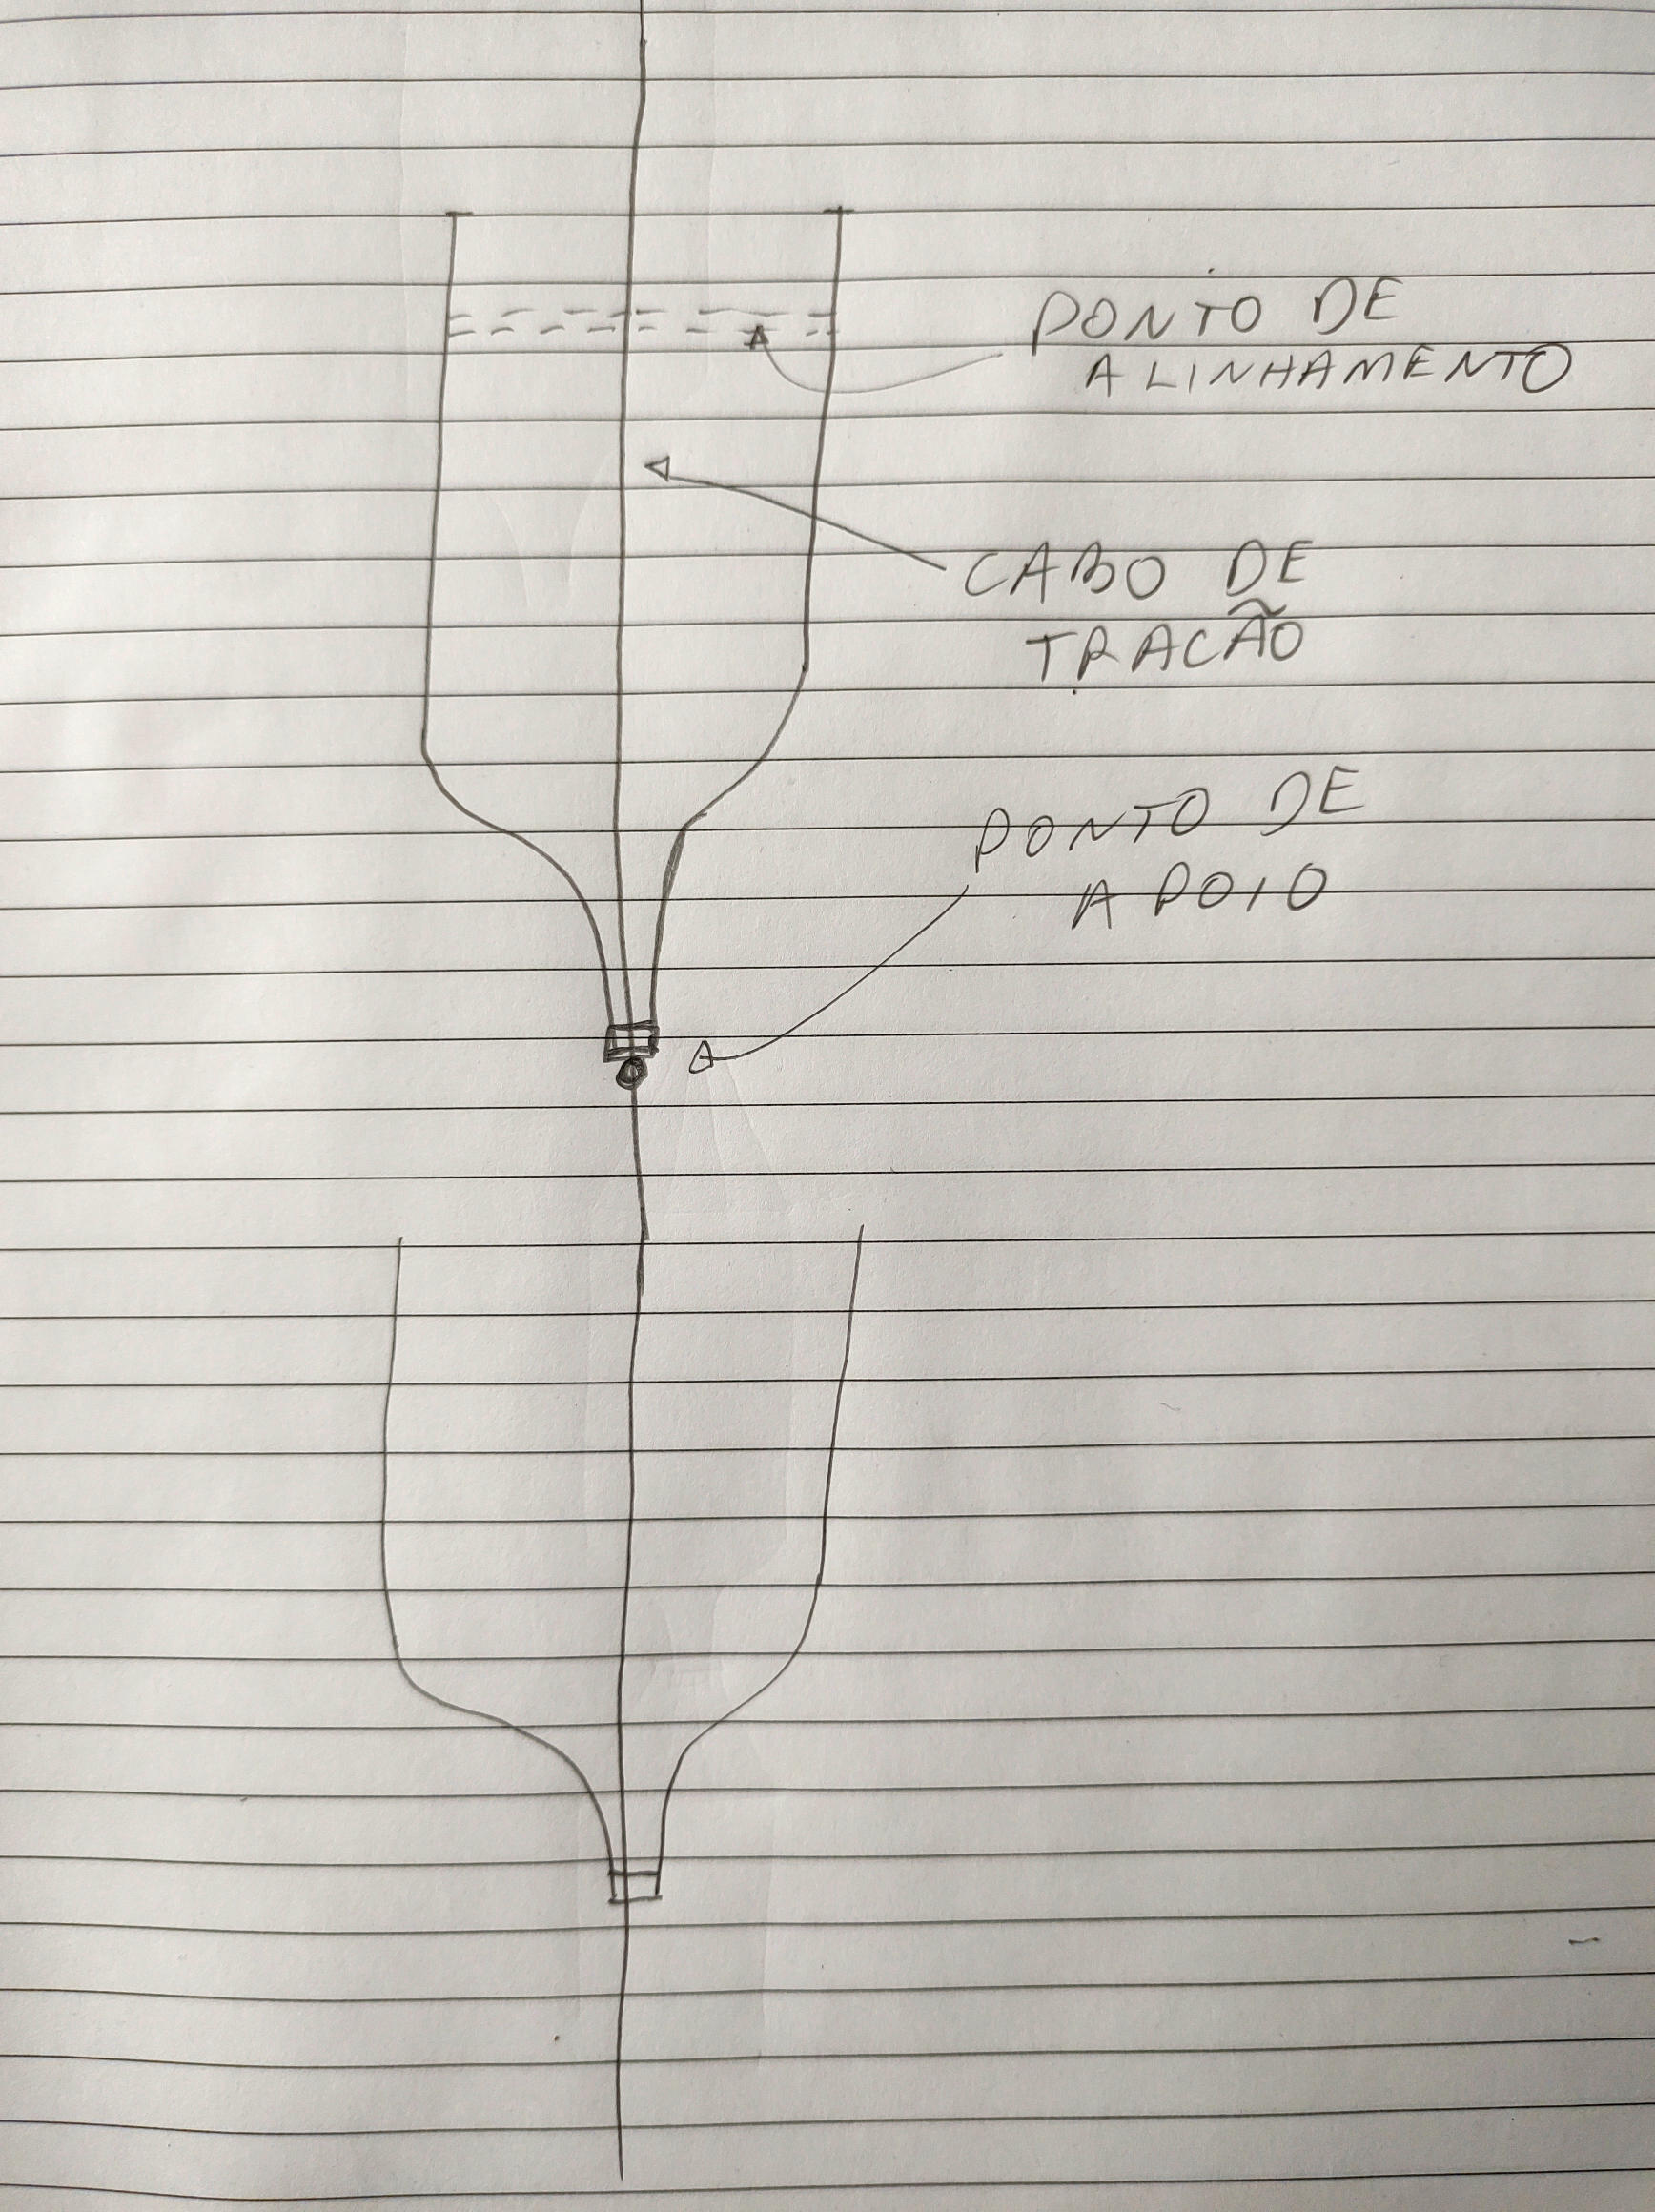 PONTO DE
ALINHAMENTO
CABO DE
TRACÃO
PONTO DE
APOIO